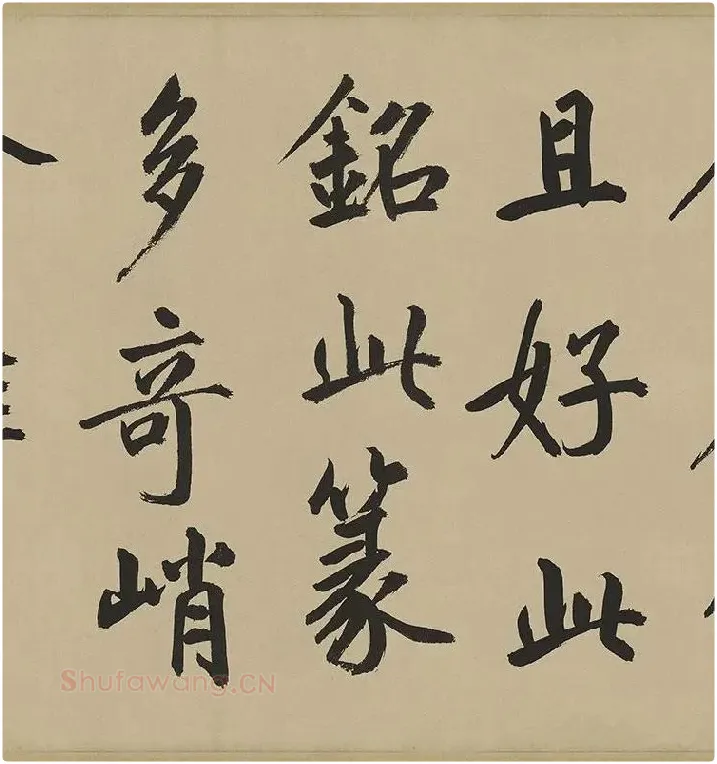 且好此
銘此篆
多奇峭
Shufawang.CN